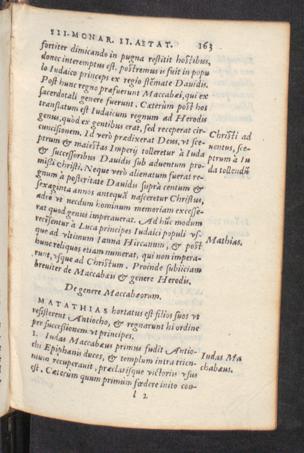 III. MONAR. II. AETAT. 163
fortiter dimicando in pugna restitit hostibus,
donec interemptus est. postremus is fuit in popu
lo Iudaico princeps ex regio stemate Dauidis.
Post hunc regno præfuerunt Maccabæi, qui ex
sacerdotali genere fuerunt. Cæterùm post hos
translatum est Iudaicum regnum ad Herodis
genus, quòd ex gentibus erat, sed receperat cir-
cuncisionem. Id verò prædixerat Deus, vt sce-
ptrum & maiestas Imperij tolleretur à Iuda
& successoribus Dauidis sub aduentum pro-
missi Christi. Neque verò alienatum fuerat re-
gnum à posteritate Dauidis supra centum &
sexaginta annos antequã nasceretur Christus,
adeò vt nedum hominum memoriam excesse-
rat quod genus imperauerat. Ad hunc modum
recensentur à Luca principes Iudaici populi vs-
que ad vltimum Ianna Hircanum, & post
hunc reliquos etiam numerat, qui non impera-
runt, vsque ad Christum. Proinde subiiciam
breuiter de Maccabæis & genere Herodis.
Christi ad
uentus, sce-
ptrum à Iu
da tollendũ
Mathias.
De genere Maccabæorum.
MATATHIAS hortatus est filios suos vt
resisterent Antiocho, & regnarunt hi ordine
per successionem vt principes.
1. Iudas Maccabæus primus fudit Antio-
chi Epiphanis duces, & templum intra trien-
nium recuperauit, præclarísque victoriis vsus
est. Cæterum quum primùm fœdere inito con-
Iudas Ma
chabæus.
l 2